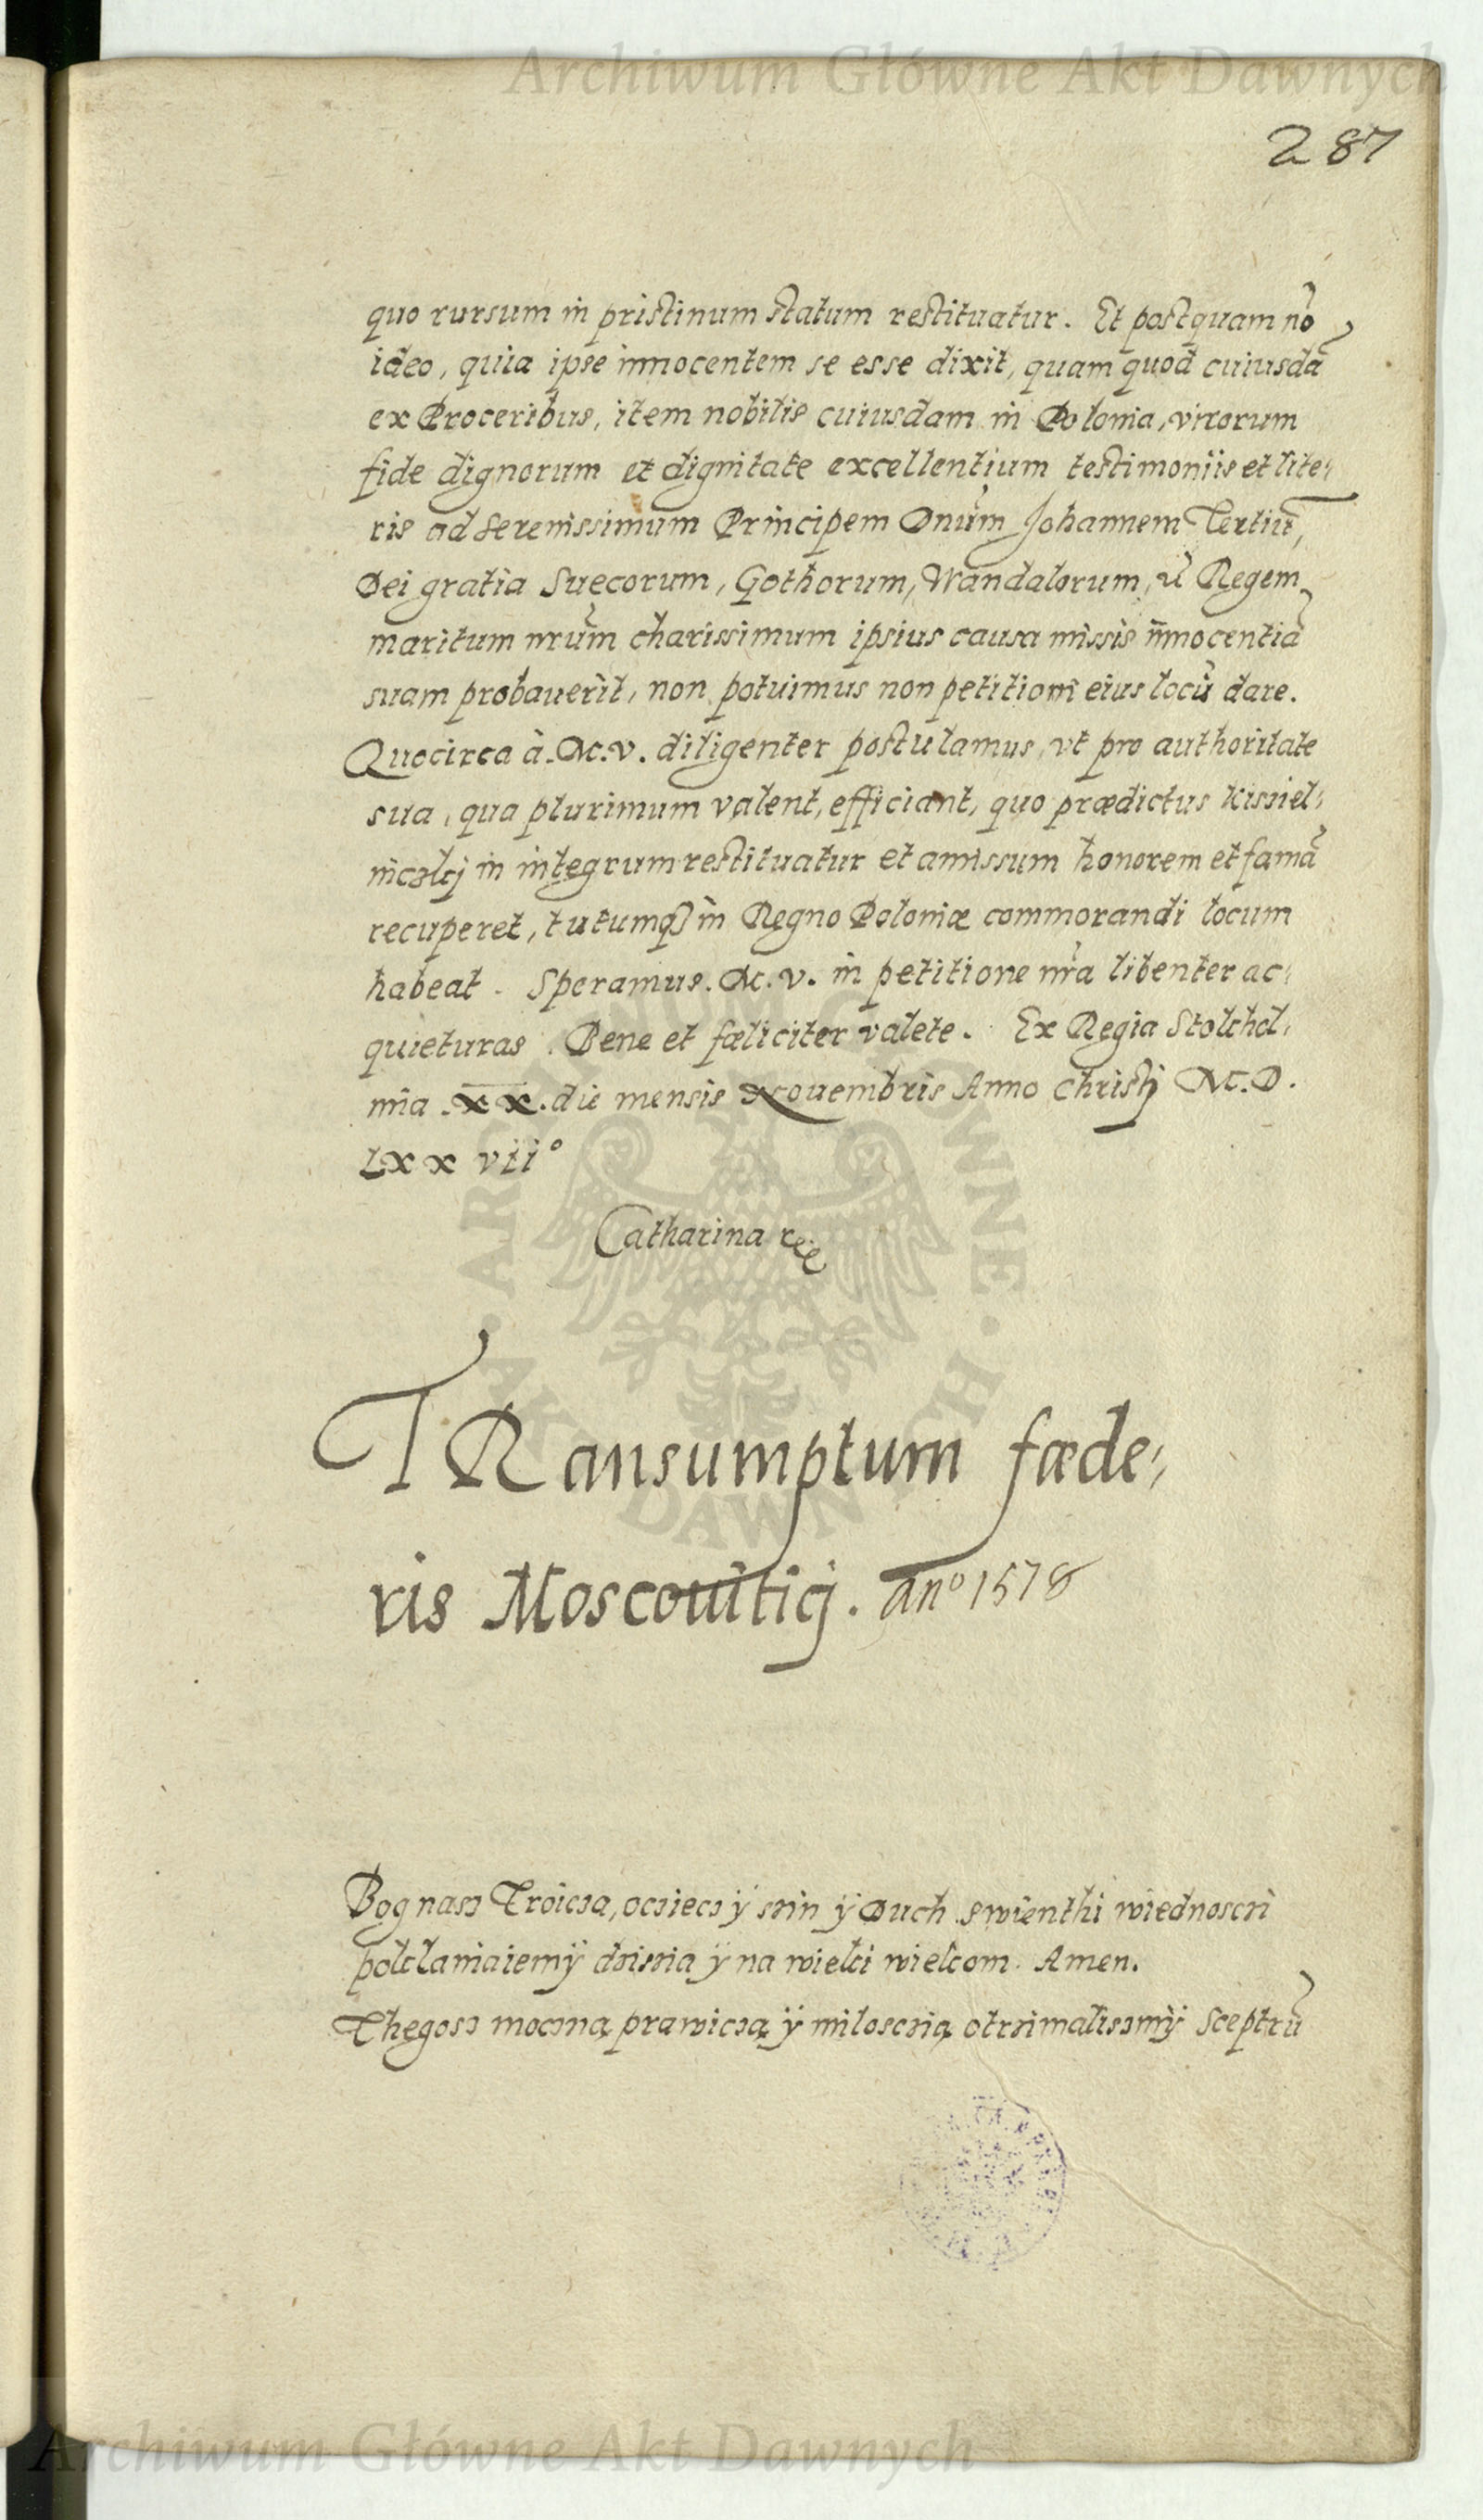 Archiwum Główne Akt Dawnych
287
quo rursum in pristinum statum restituatur. Et postquam nõ
ideo, quia ipse innocentem se esse dixit, quam quod cuiusdã
ex Proceribus, item nobilis cuiusdam in Polonia, virorum
fide dignorum et dignitate excellentium testimoniis et lite-
ris ad Serenissimum Principem Dnum Johannem Tertiũ,
Dei gratia Suecorum, Gothorum, Wandalorum, Regem
maritum nrum charissimum ipsius causa missis innocentiã
suam probauerit, non potuimus non petitioni eius locũ dare.
Quocirca à M. v. diligenter postulamus, vt pro authoritate
sua, qua plurimum valent, efficiant, quo prædictus Kisziel-
niczkj in integrum restituatur et amissum honorem et famã
recuperet, tutumq3 in Regno Poloniæ commorandi locum
habeat. Speramus. M. v. in petitione nra libenter ac-
quieturas. Bene et fœliciter valete. Ex Regia Stolckhol-
mia XX. die mensis Nouembris Anno Christj M. D.
Lxx vii°
Catharina
TRansumptum fœde-
ris Moscouiticj. an° 1578
Bog nasz Troicza, ocziecz ÿ szin ÿ Duch swienthi wiednosczi
pokłaniaiemÿ dzisia ÿ na wieki wiekom. Amen.
Thegosz moczną prawiczą ÿ miloscią otrzimalismÿ Sceptrũ
ARCHIWUM GŁÓWNE AKT DAWNYCH
Archiwum Główne Akt Dawnych